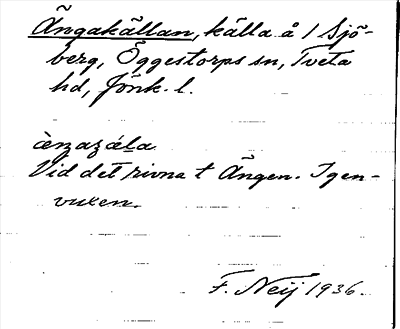 Ängakällan, källa å 1 Sjö-
berg, Öggestorps sn, Tveta
hd, Jönk. l.
Vid det rivna t Ängen. Igen-
vuxen.
F. Neij 1936.